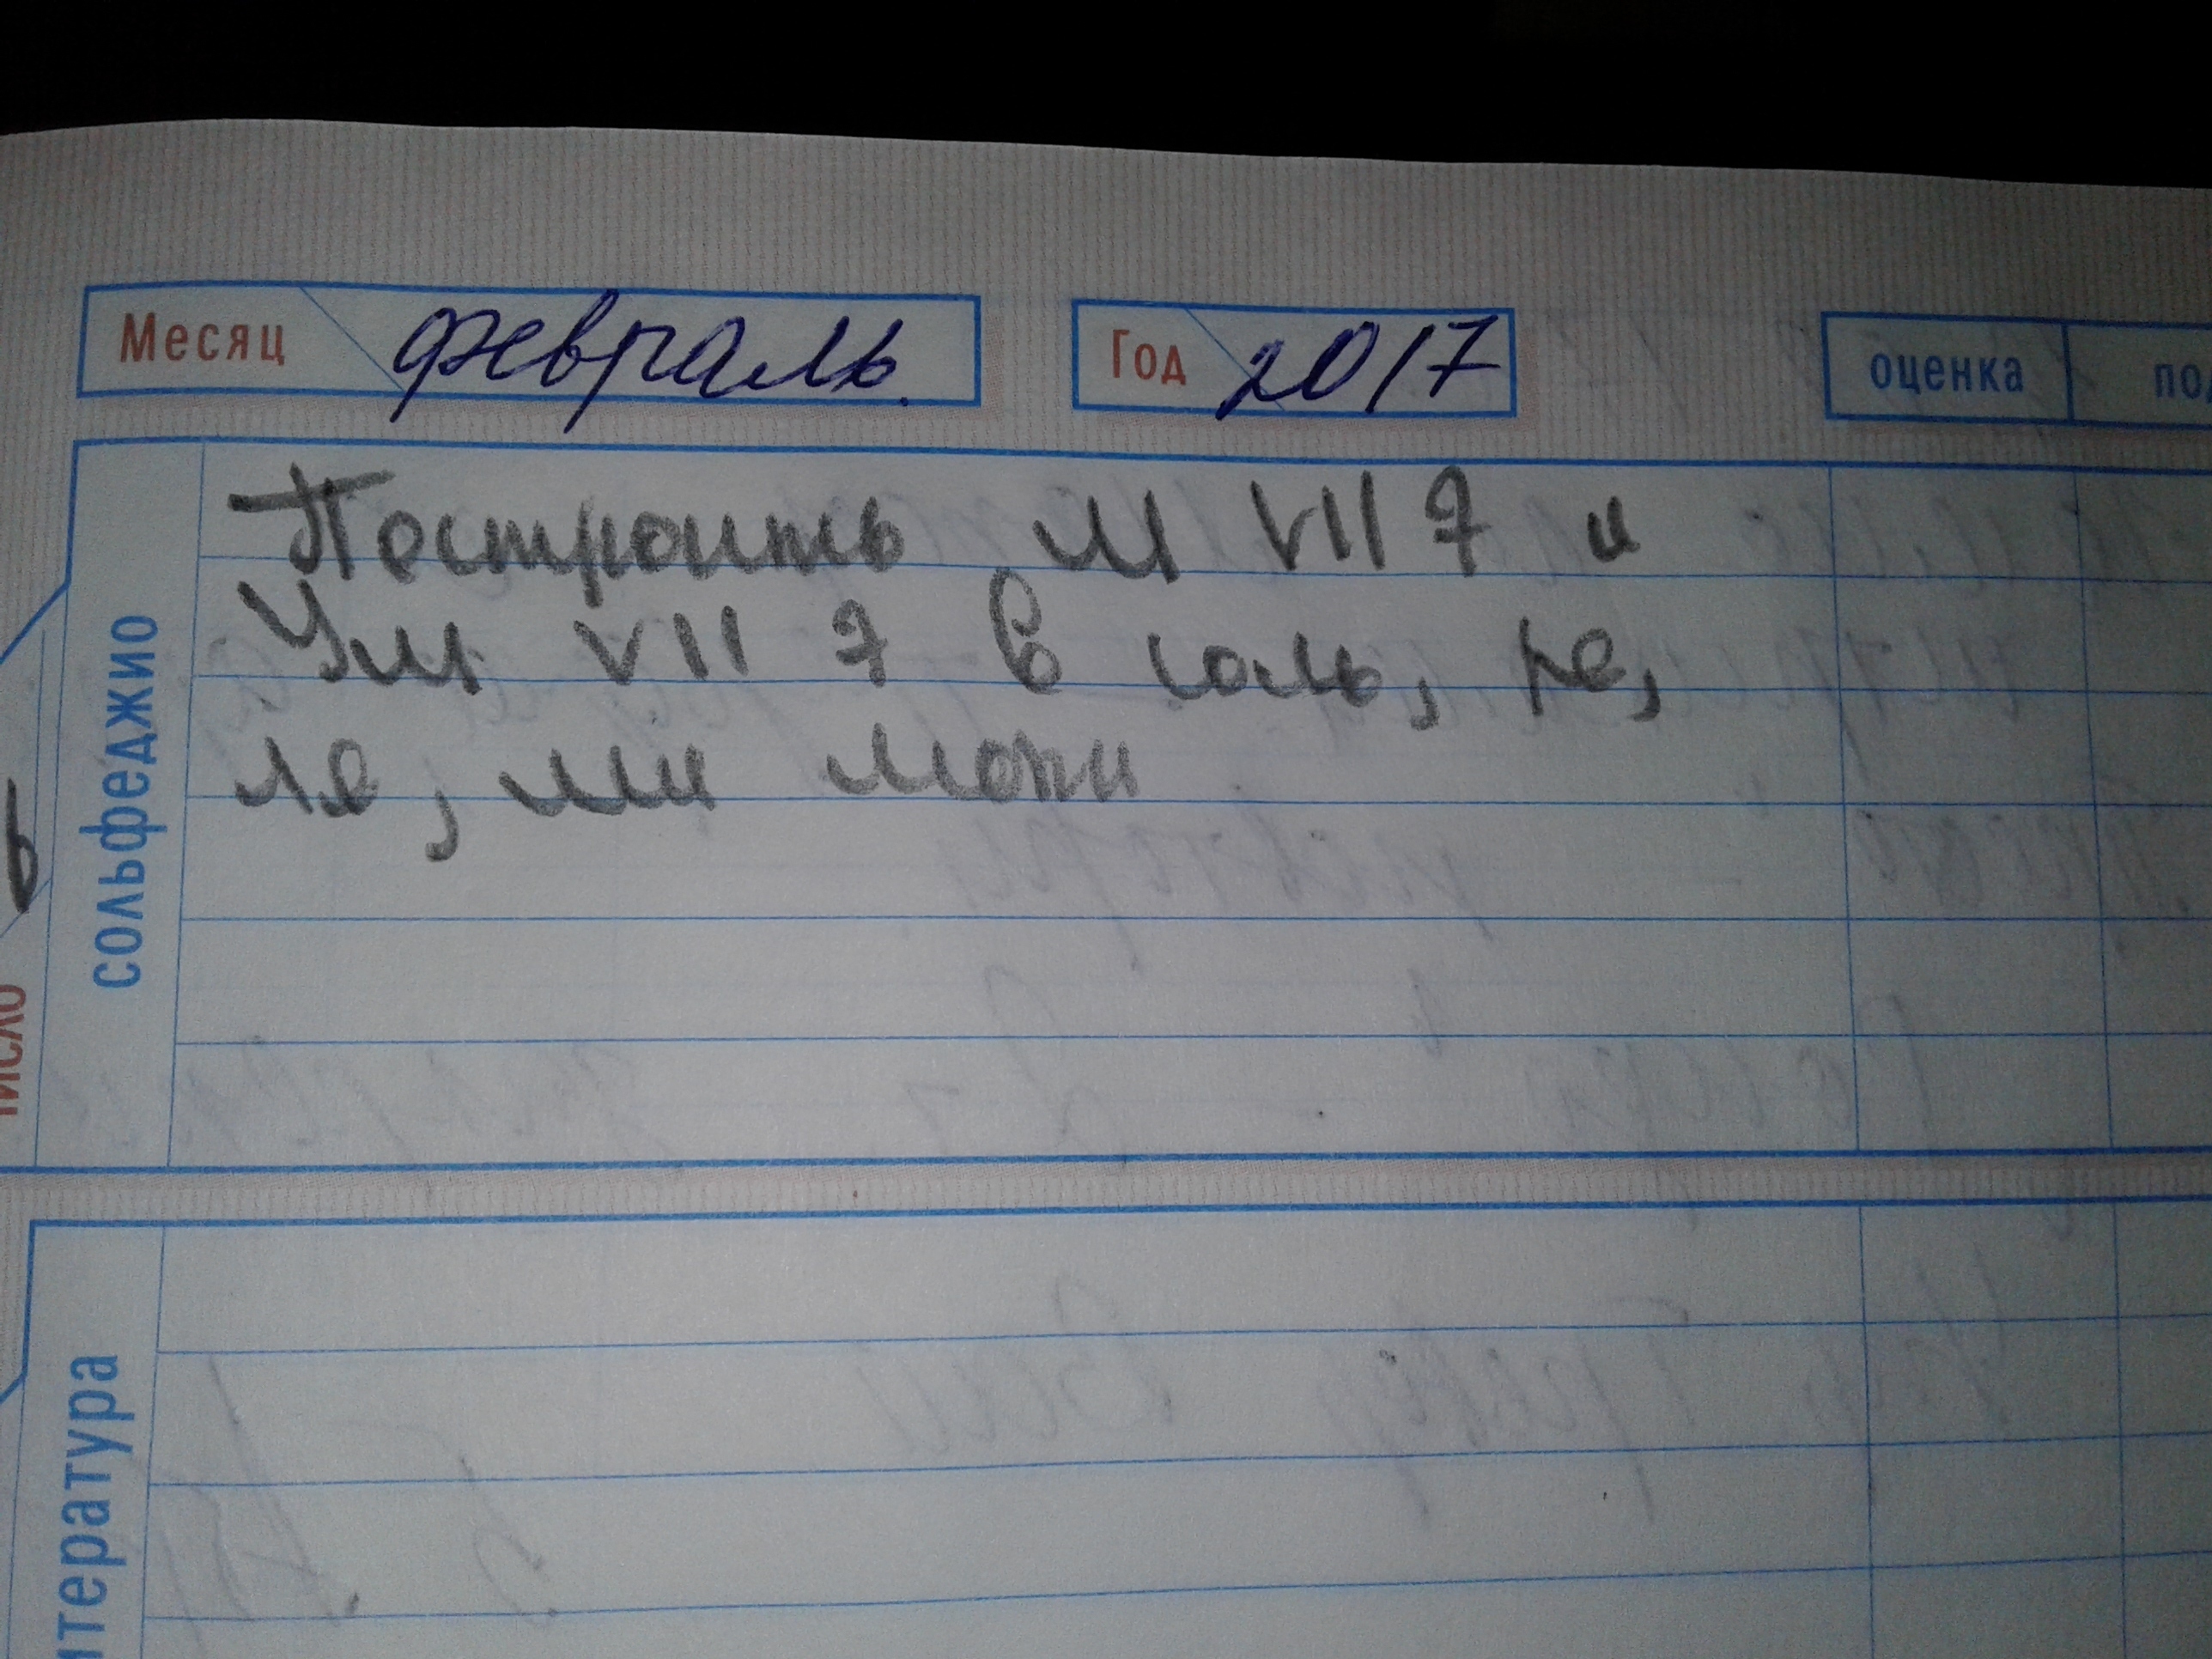 Месяц февраль. Год 2017 оценка
Построить м VII 7 и
Ум VII 7 в соль, ре,
ля, ми мажи
сольфеджио
число